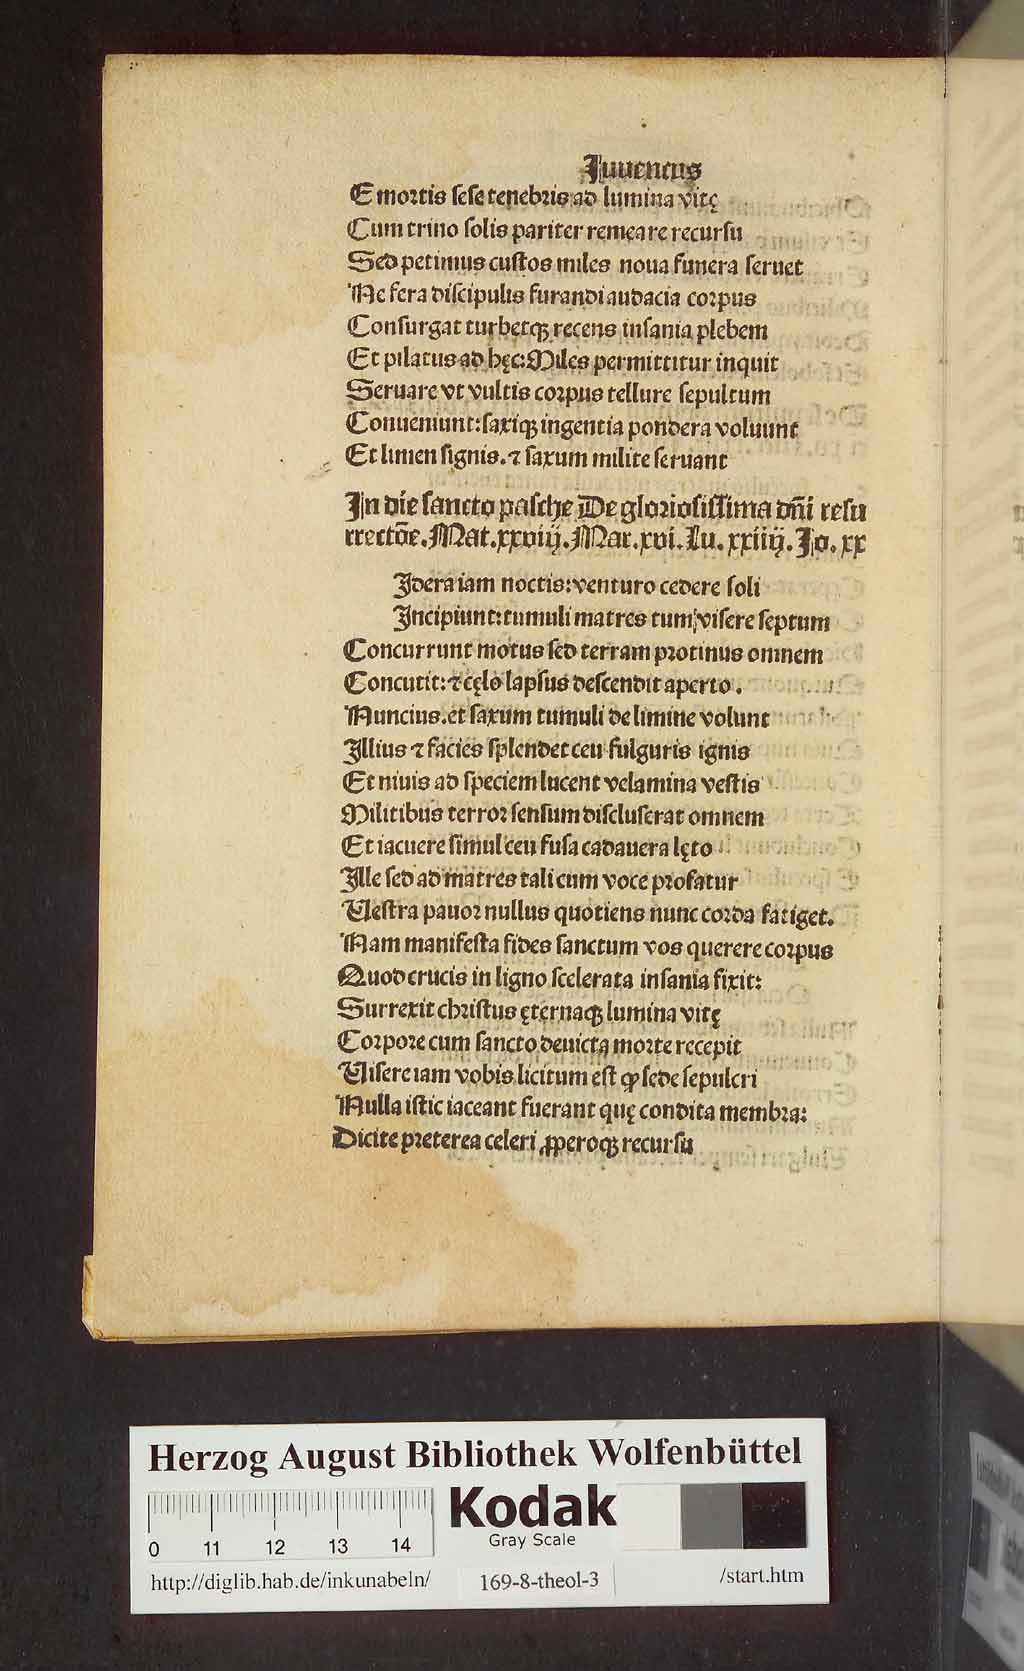 Juuencus
E mortis sese tenebris ad lumina vitę
Cum trino solis pariter remeare recursu
Sed petimus custos miles noua funera seruet
Ne fera discipulis furandi audacia corpus
Consurgat turbetqꝫ recens insania plebem
Et pilatus ad hęc: Miles permittitur inquit
Seruare vt vultis corpus tellure sepultum
Conueniunt: saxiqꝫ ingentia pondera voluunt
Et limen signis. ⁊ saxum milite seruant
In die sancto pasche De gloriosissima dn̄i resu
rrectōe. Mat. xxviij. Mar. xvi. Lu. xxiiij. Jo. xx
Idera iam noctis: venturo cedere soli
Incipiunt: tumuli matres tum visere septum
Concurrunt motus sed terram protinus omnem
Concutit: ⁊ cęlo lapsus descendit aperto.
Nuncius. et saxum tumuli de limine volunt
Illius ⁊ facies splendet ceu fulguris ignis
Et niuis ad speciem lucent velamina vestis
Militibus terror sensum discluserat omnem
Et iacuere simul ceu fusa cadauera lęto
Ille sed ad matres tali cum voce profatur
Vestra pauor nullus quotiens nunc corda fatiget.
Nam manifesta fides sanctum vos querere corpus
Quod crucis in ligno scelerata insania fixit:
Surrexit christus ęternaqꝫ lumina vitę
Corpore cum sancto deuicta morte recepit
Visere iam vobis licitum est ꝙ sede sepulcri
Nulla istic iaceant fuerant quę condita membra:
Dicite preterea celeri ꝓperoqꝫ recursu
Herzog August Bibliothek Wolfenbüttel
Kodak
Gray Scale
0 11 12 13 14
http://diglib.hab.de/inkunabeln/ 169-8-theol-3 /start.htm